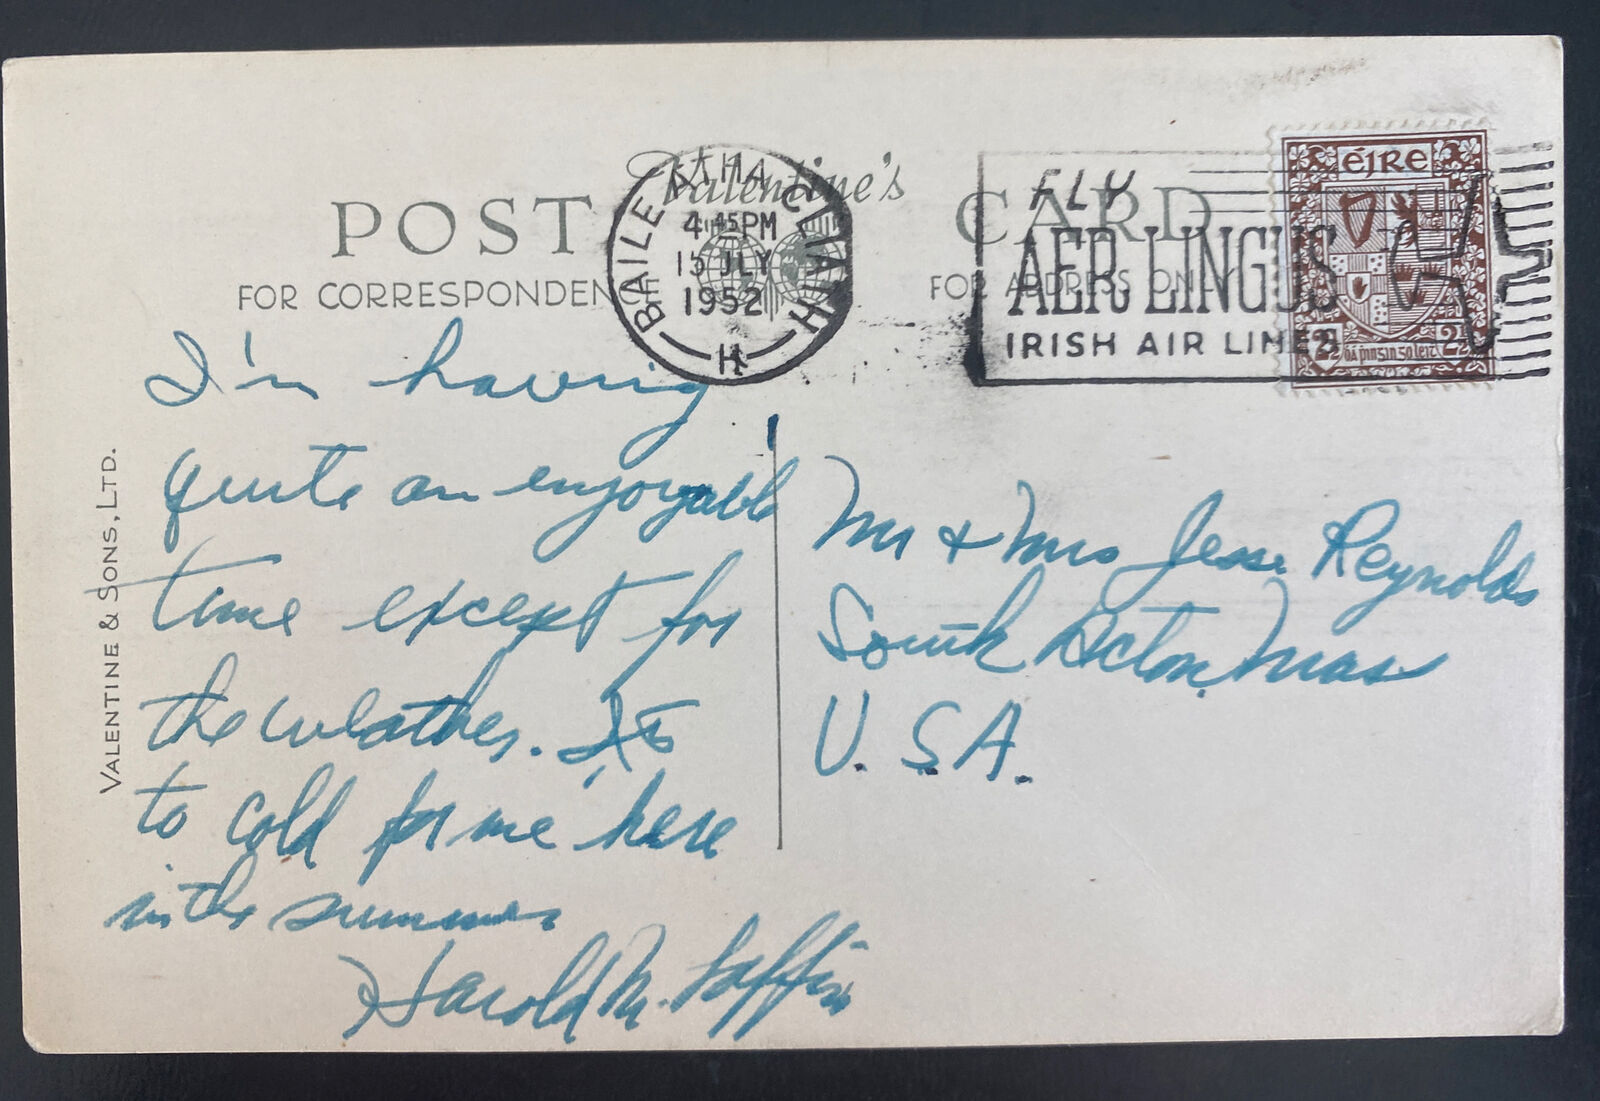 Valentine's
POST CARD
FOR CORRESPONDEN
FOR ADDRESS ONLY
BAILE ÁTHA CLIATH
4 45 PM
15 JLY
1952
H
FLY
AER LINGUS
IRISH AIR LINES
éire
2½ dá pinsin go leit 2½
VALENTINE & SONS, LTD.
I'm having
quite an enjoyable
time except for
the weather. Its
to cold for me here
in the summer
Harold M.
Mr & Mrs Jesse Reynolds
South Acton, Mass
U.S.A.